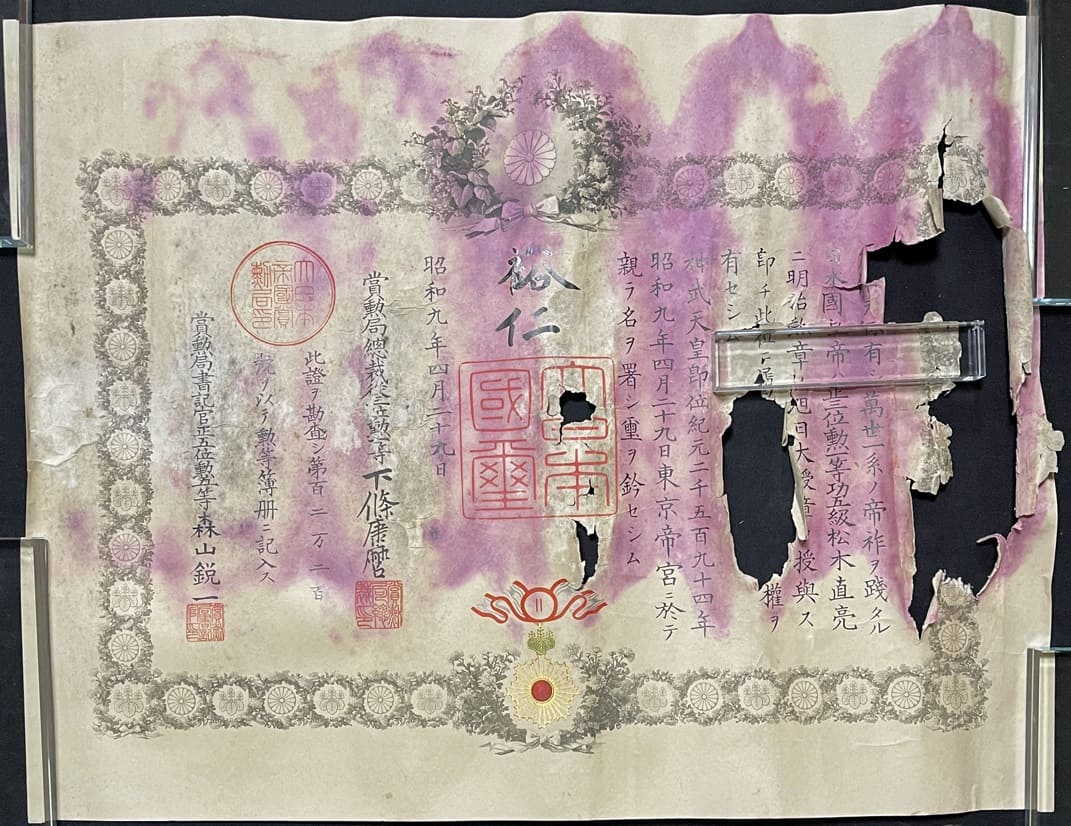 ヲ保有シ萬世一系ノ帝祚ヲ踐タル
本國 帝ハ正三位勲一等功五級松木直亮
ニ明治勲章ノ旭日大授章 授與ス
卽チ此位ニ屬 權ヲ
有セシム
神武天皇卽位紀元二千五百九十四年
昭和九年四月二十九日東京帝宮ニ於テ
親ラ名ヲ署シ璽ヲ鈐セシム
裕仁
大日本國璽
昭和九年四月二十九日
賞勲局總裁從三位勲 等下條康麿
此證ヲ勘査シ第百二万 二百
號ヲ以テ勲等簿册ニ記入ス
賞勲局書記官正五位勲五等森山鋭一
大日本帝國賞勲局印